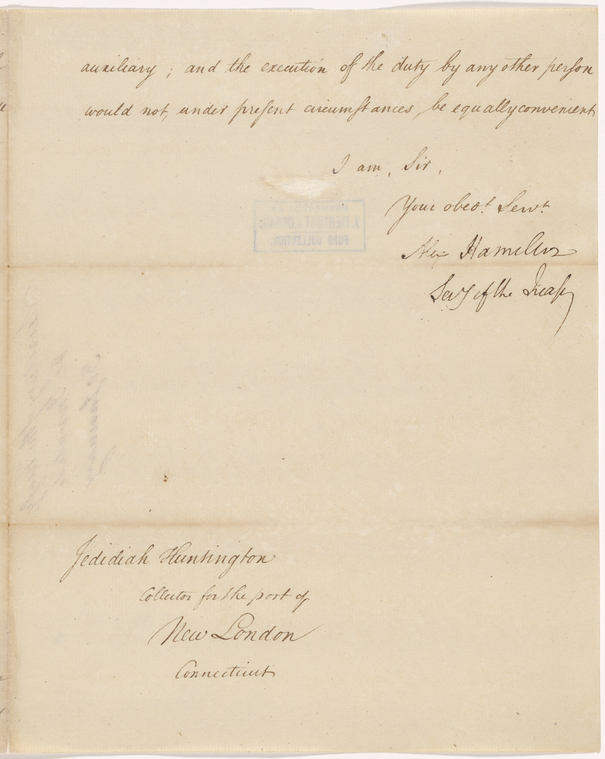 auxiliary; and the execution of the duty by any other person
would not, under present circumstances, be equally convenient
I am, Sir,
Your obedt. Servt.
Alex Hamilton
Secy of the Treasy
Jedidiah Huntington
Collector for the port of
New London
Connecticut